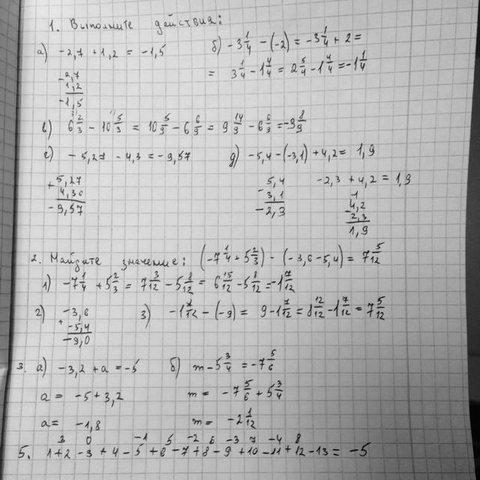 1. Выполните действия:
а) -2,7 + 1,2 = -1,5 б) -3 1/4 - (-2) = -3 1/4 + 2 =
= 3 1/4 - 1 4/4 = 2 5/4 - 1 4/4 = -1 1/4
-2,7
1,2
-1,5
в) 6 2/3 - 10 5/3 = 10 5/9 - 6 6/9 = 9 14/9 - 6 6/9 = -3 8/9
г) -5,27 - 4,3 = -9,57 д) -5,4 - (-3,1) + 4,2 = 1,9
+ 5,27
4,30
-9,57
- 5,4
3,1
-2,3
-2,3 + 4,2 = 1,9
4,2
-2,3
1,9
2. Найдите значение: (-7 1/4 + 5 2/3) - (-3,6 - 5,4) = 7 5/12
1) -7 1/4 + 5 2/3 = 7 3/12 - 5 8/12 = 6 15/12 - 5 8/12 = -1 7/12
2) -3,6
+ -5,4
-9,0
3) -1 7/12 - (-9) = 9 - 1 7/12 = 8 12/12 - 1 7/12 = 7 5/12
3. а) -3,2 + a = -5 б) m - 5 3/4 = -7 5/6
a = -5 + 3,2 m = -7 5/6 + 5 3/4
a = -1,8 m = -2 1/12
3 0 -1 5 -2 6 -3 7 -4 8
5. 1 + 2 - 3 + 4 - 5 + 6 - 7 + 8 - 9 + 10 - 11 + 12 - 13 = -5